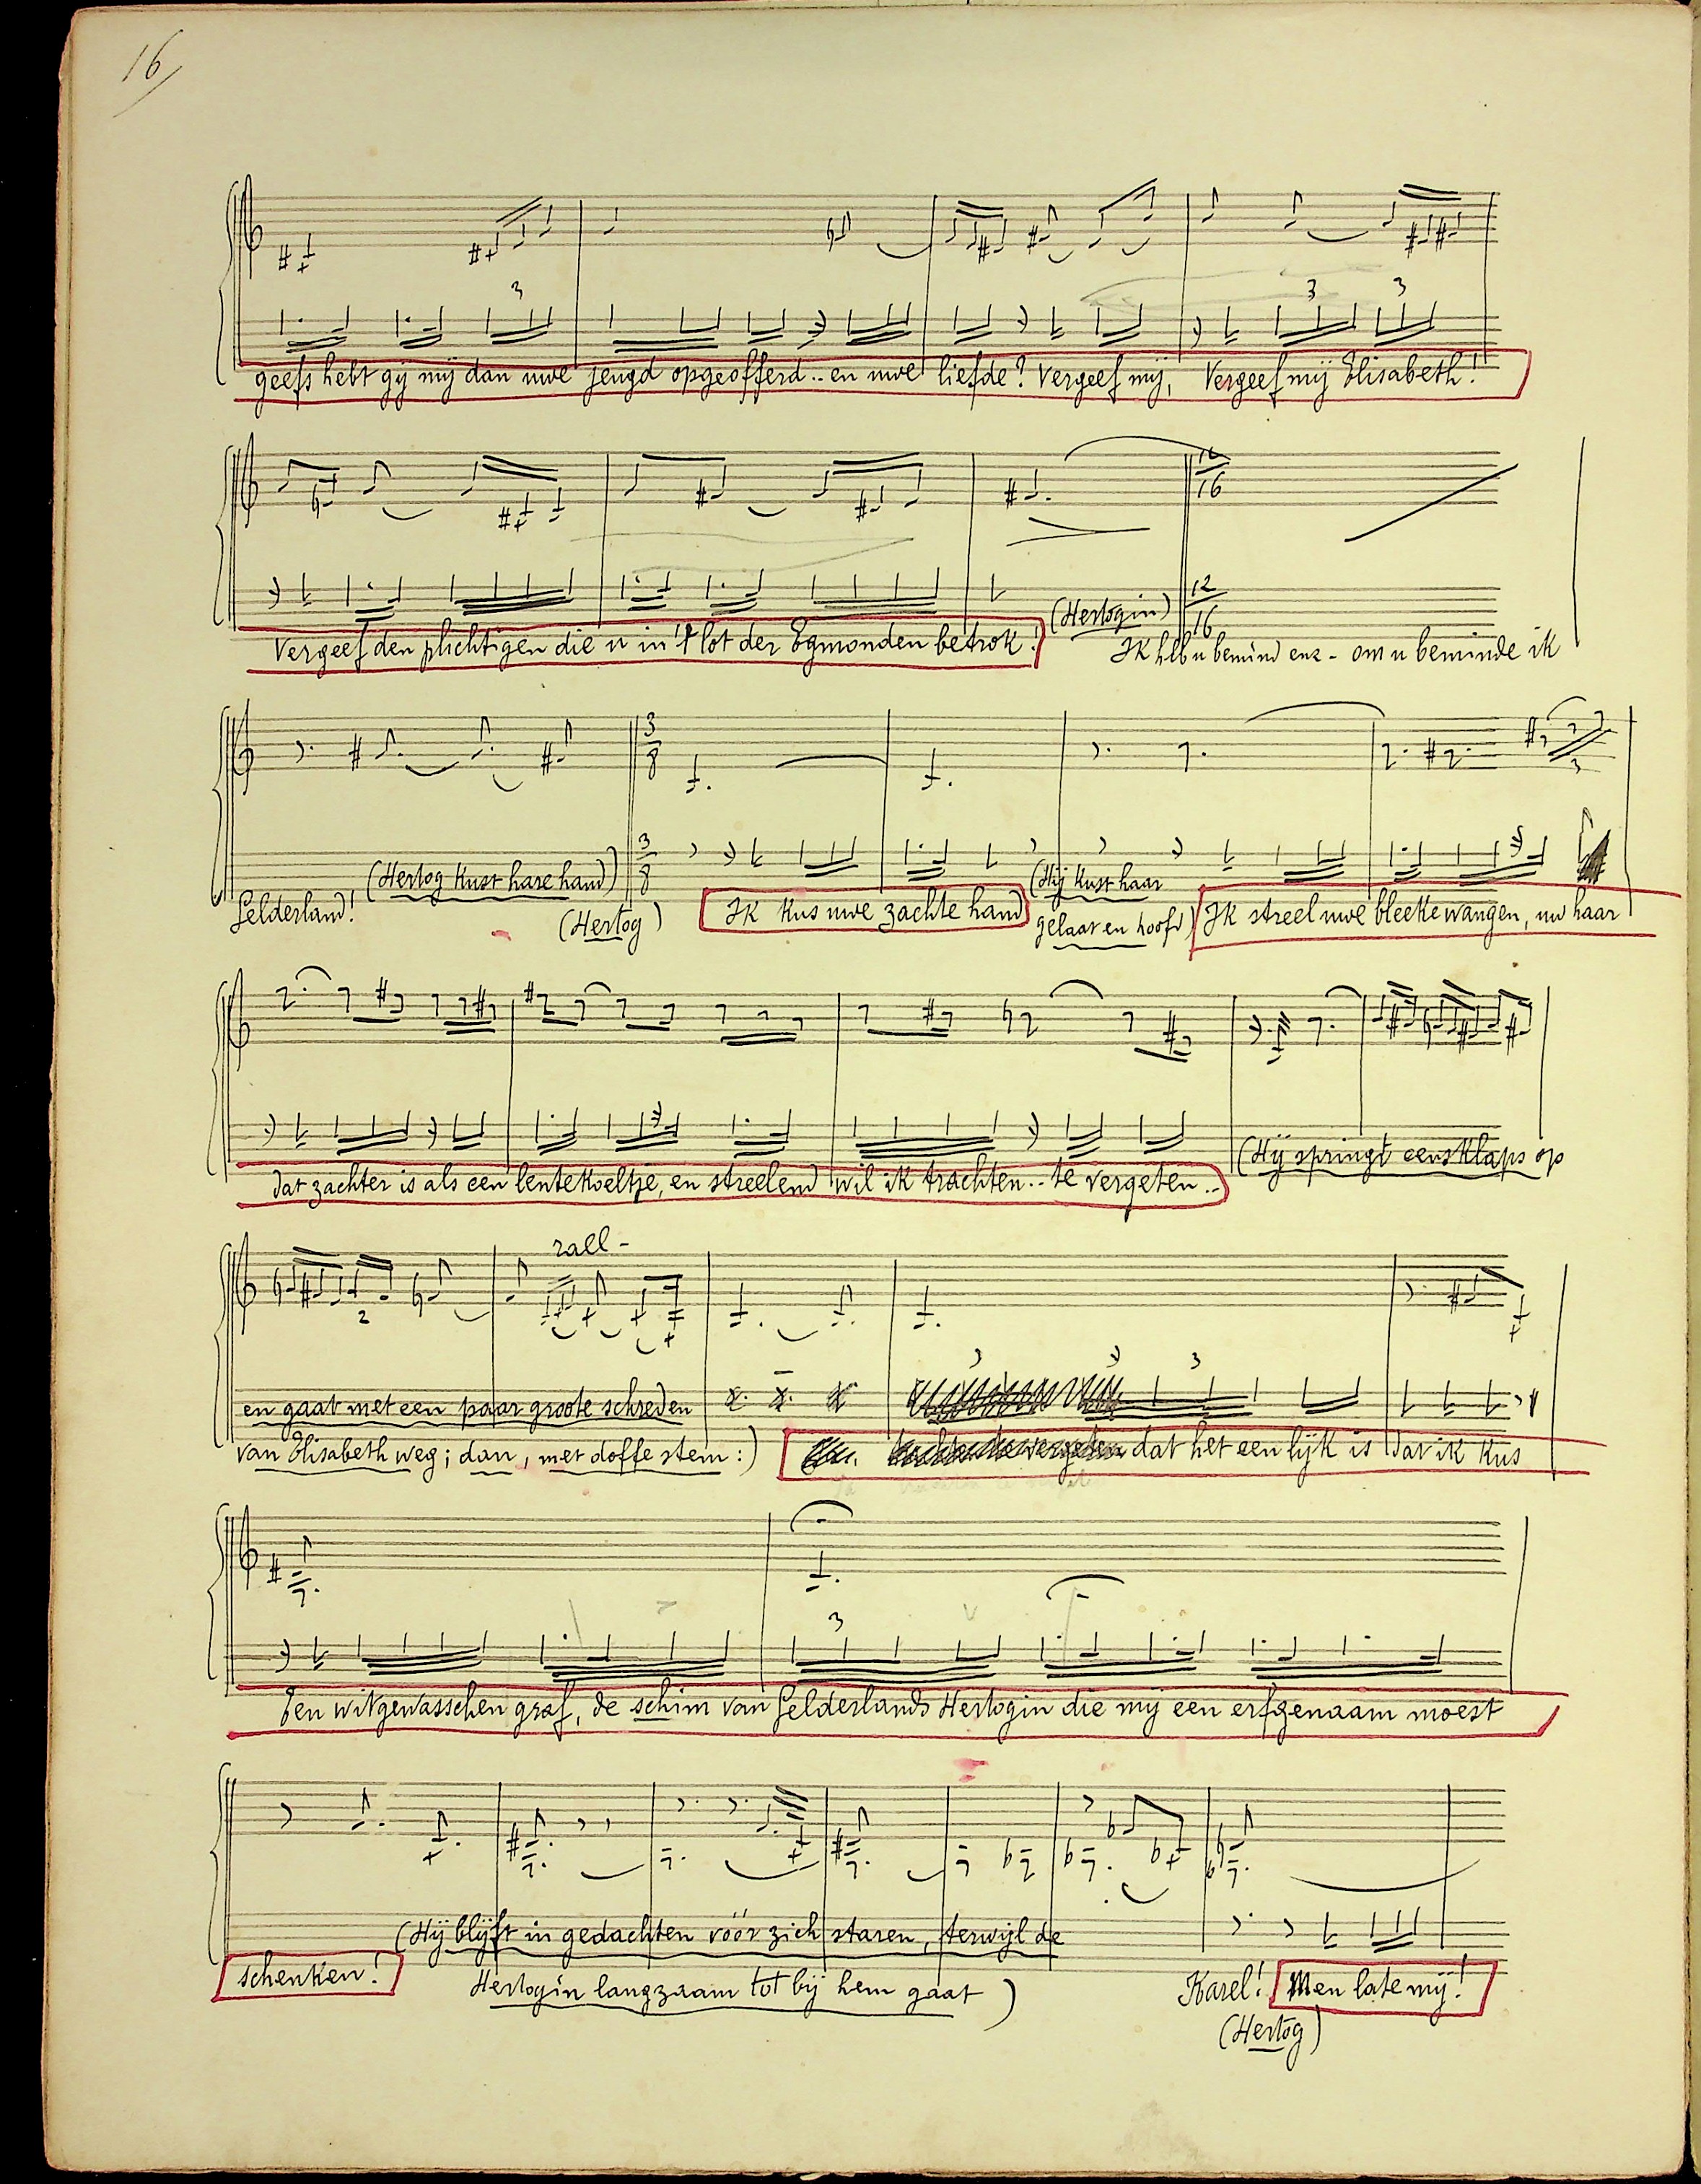 16
geefs hebt gij mij dan uwe jeugd opgeofferd .. en uwe liefde? Vergeef mij, Vergeef mij Elisabeth!
Vergeef den plichtigen die u in 't lot der Egmonden betrok! (Hertogin) Ik heb u bemind enz - om u beminde ik
Gelderland! (Hertog kust hare hand) (Hertog) Ik kus uwe zachte hand (Hij kust haar
gelaat en hoofd) Ik streel uwe bleeke wangen, uw haar
dat zachter is als een lentekoeltje, en streelend wil ik trachten .. te vergeten .. (Hij springt eensklaps op
rall -
en gaat met een paar groote schreden
van Elisabeth weg; dan, met doffe stem:) dat het een lijk is dat ik kus
Een witgewasschen graf, de schim van Gelderlands Hertogin die mij een erfgenaam moest
(Hij blijft in gedachten vóór zich staren, terwijl de
schenken! Hertogin langzaam tot bij hem gaat) Karel! Men late mij!
(Hertog)